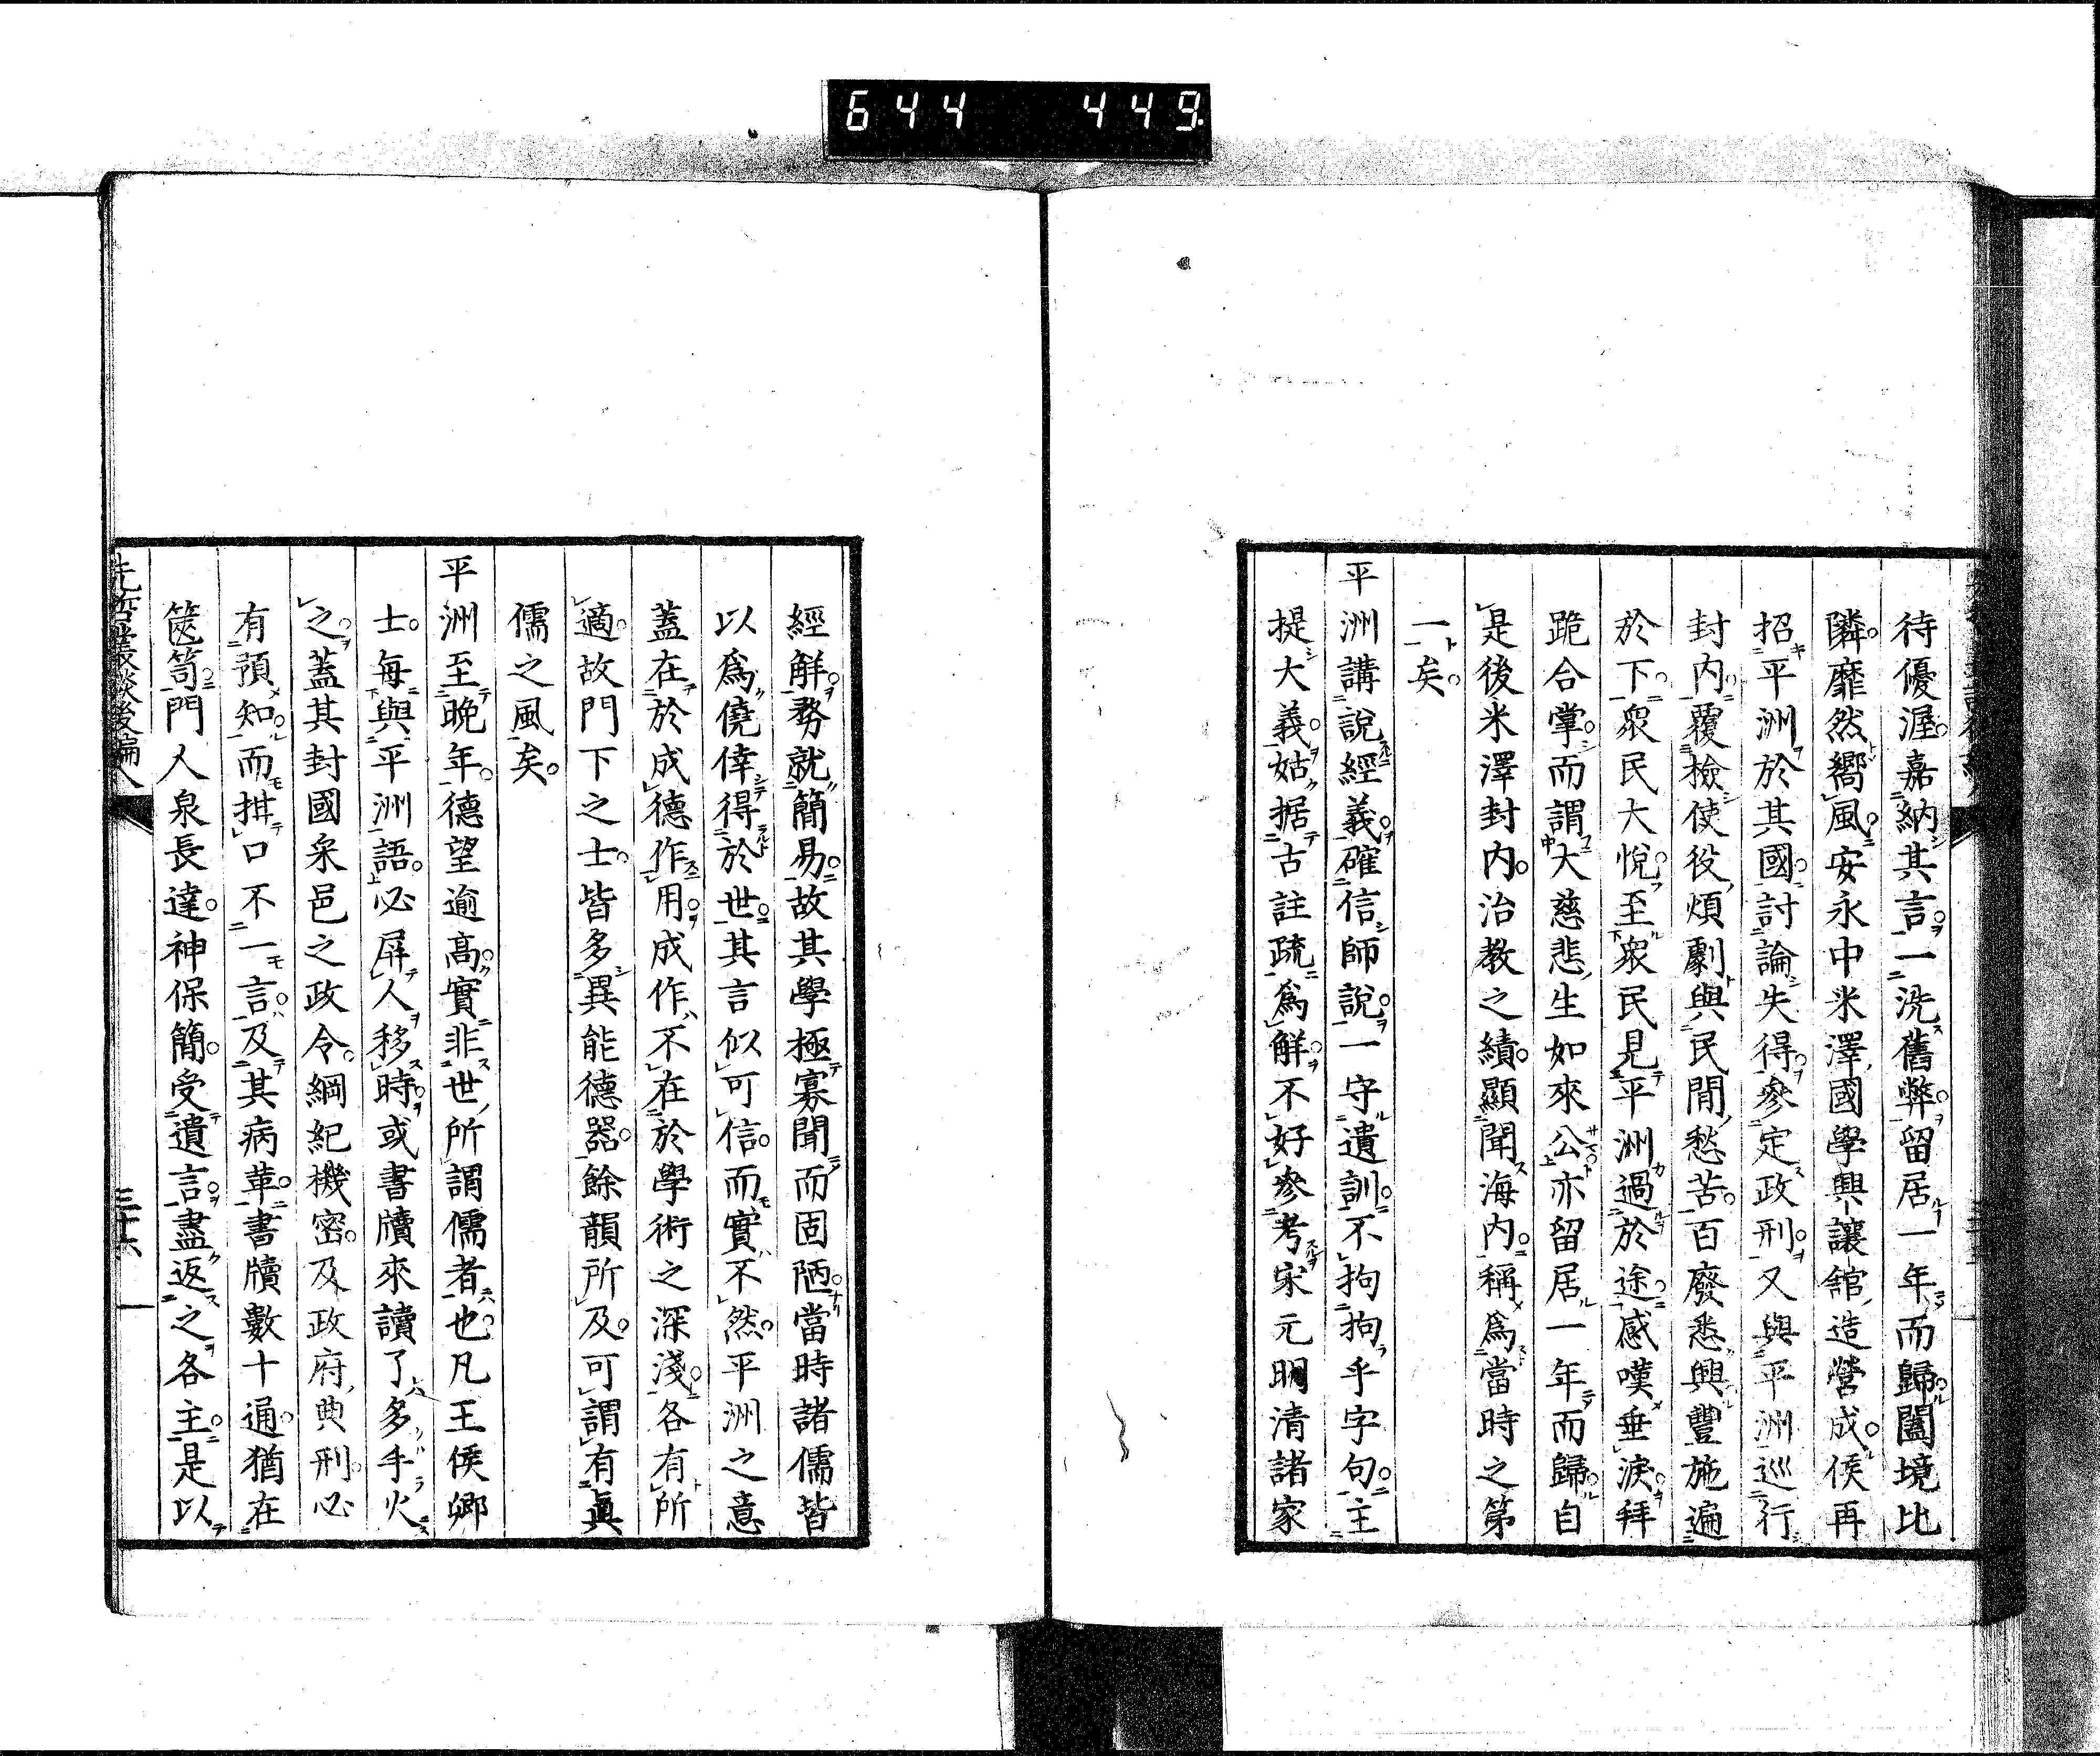 644 449
待優渥嘉納其言一洗舊弊留居一年而歸闔境比
隣靡然嚮風安永中米澤國學興讓館造營成侯再
招平洲於其國討論失得參定政刑又與平洲巡行
封内覆檢使役煩劇與民間愁苦百廢悉興豐施遍
於下衆民大悅至衆民見平洲過於途感嘆垂淚拜
跪合掌而謂大慈悲生如來公亦留居一年而歸自
是後米澤封内治教之績顯聞海内稱爲當時之第
一矣
平洲講說經義確信師說一守遺訓不拘拘乎字句主
提大義姑据古註疏爲解不好參考宋元明清諸家
經解務就簡易故其學極寡聞而固陋當時諸儒皆
以爲僥倖得於世其言似可信而實不然平洲之意
蓋在於成德作用成作不在於學術之深淺各有所
適故門下之士皆多異能德器餘韻所及可謂有眞
儒之風矣
平洲至晩年德望逾高實非世所謂儒者也凡王侯卿
士每與平洲語必屛人移時或書牘來讀了多手火
之蓋其封國采邑之政令綱紀機密及政府典刑必
有預知而拑口不一言及其病革書牘數十通猶在
篋笥門人泉長達神保簡受遺言盡返之各主是以
先哲叢談後編八 三十六